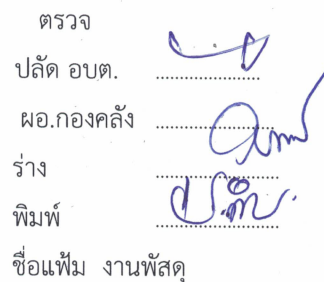 ตรวจ
ปลัด อบต. ..........................
ผอ.กองคลัง ..............................
ร่าง ..............................
พิมพ์ ..............................
ชื่อแฟ้ม งานพัสดุ